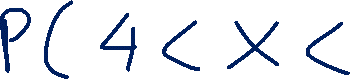 P( 4 < x <